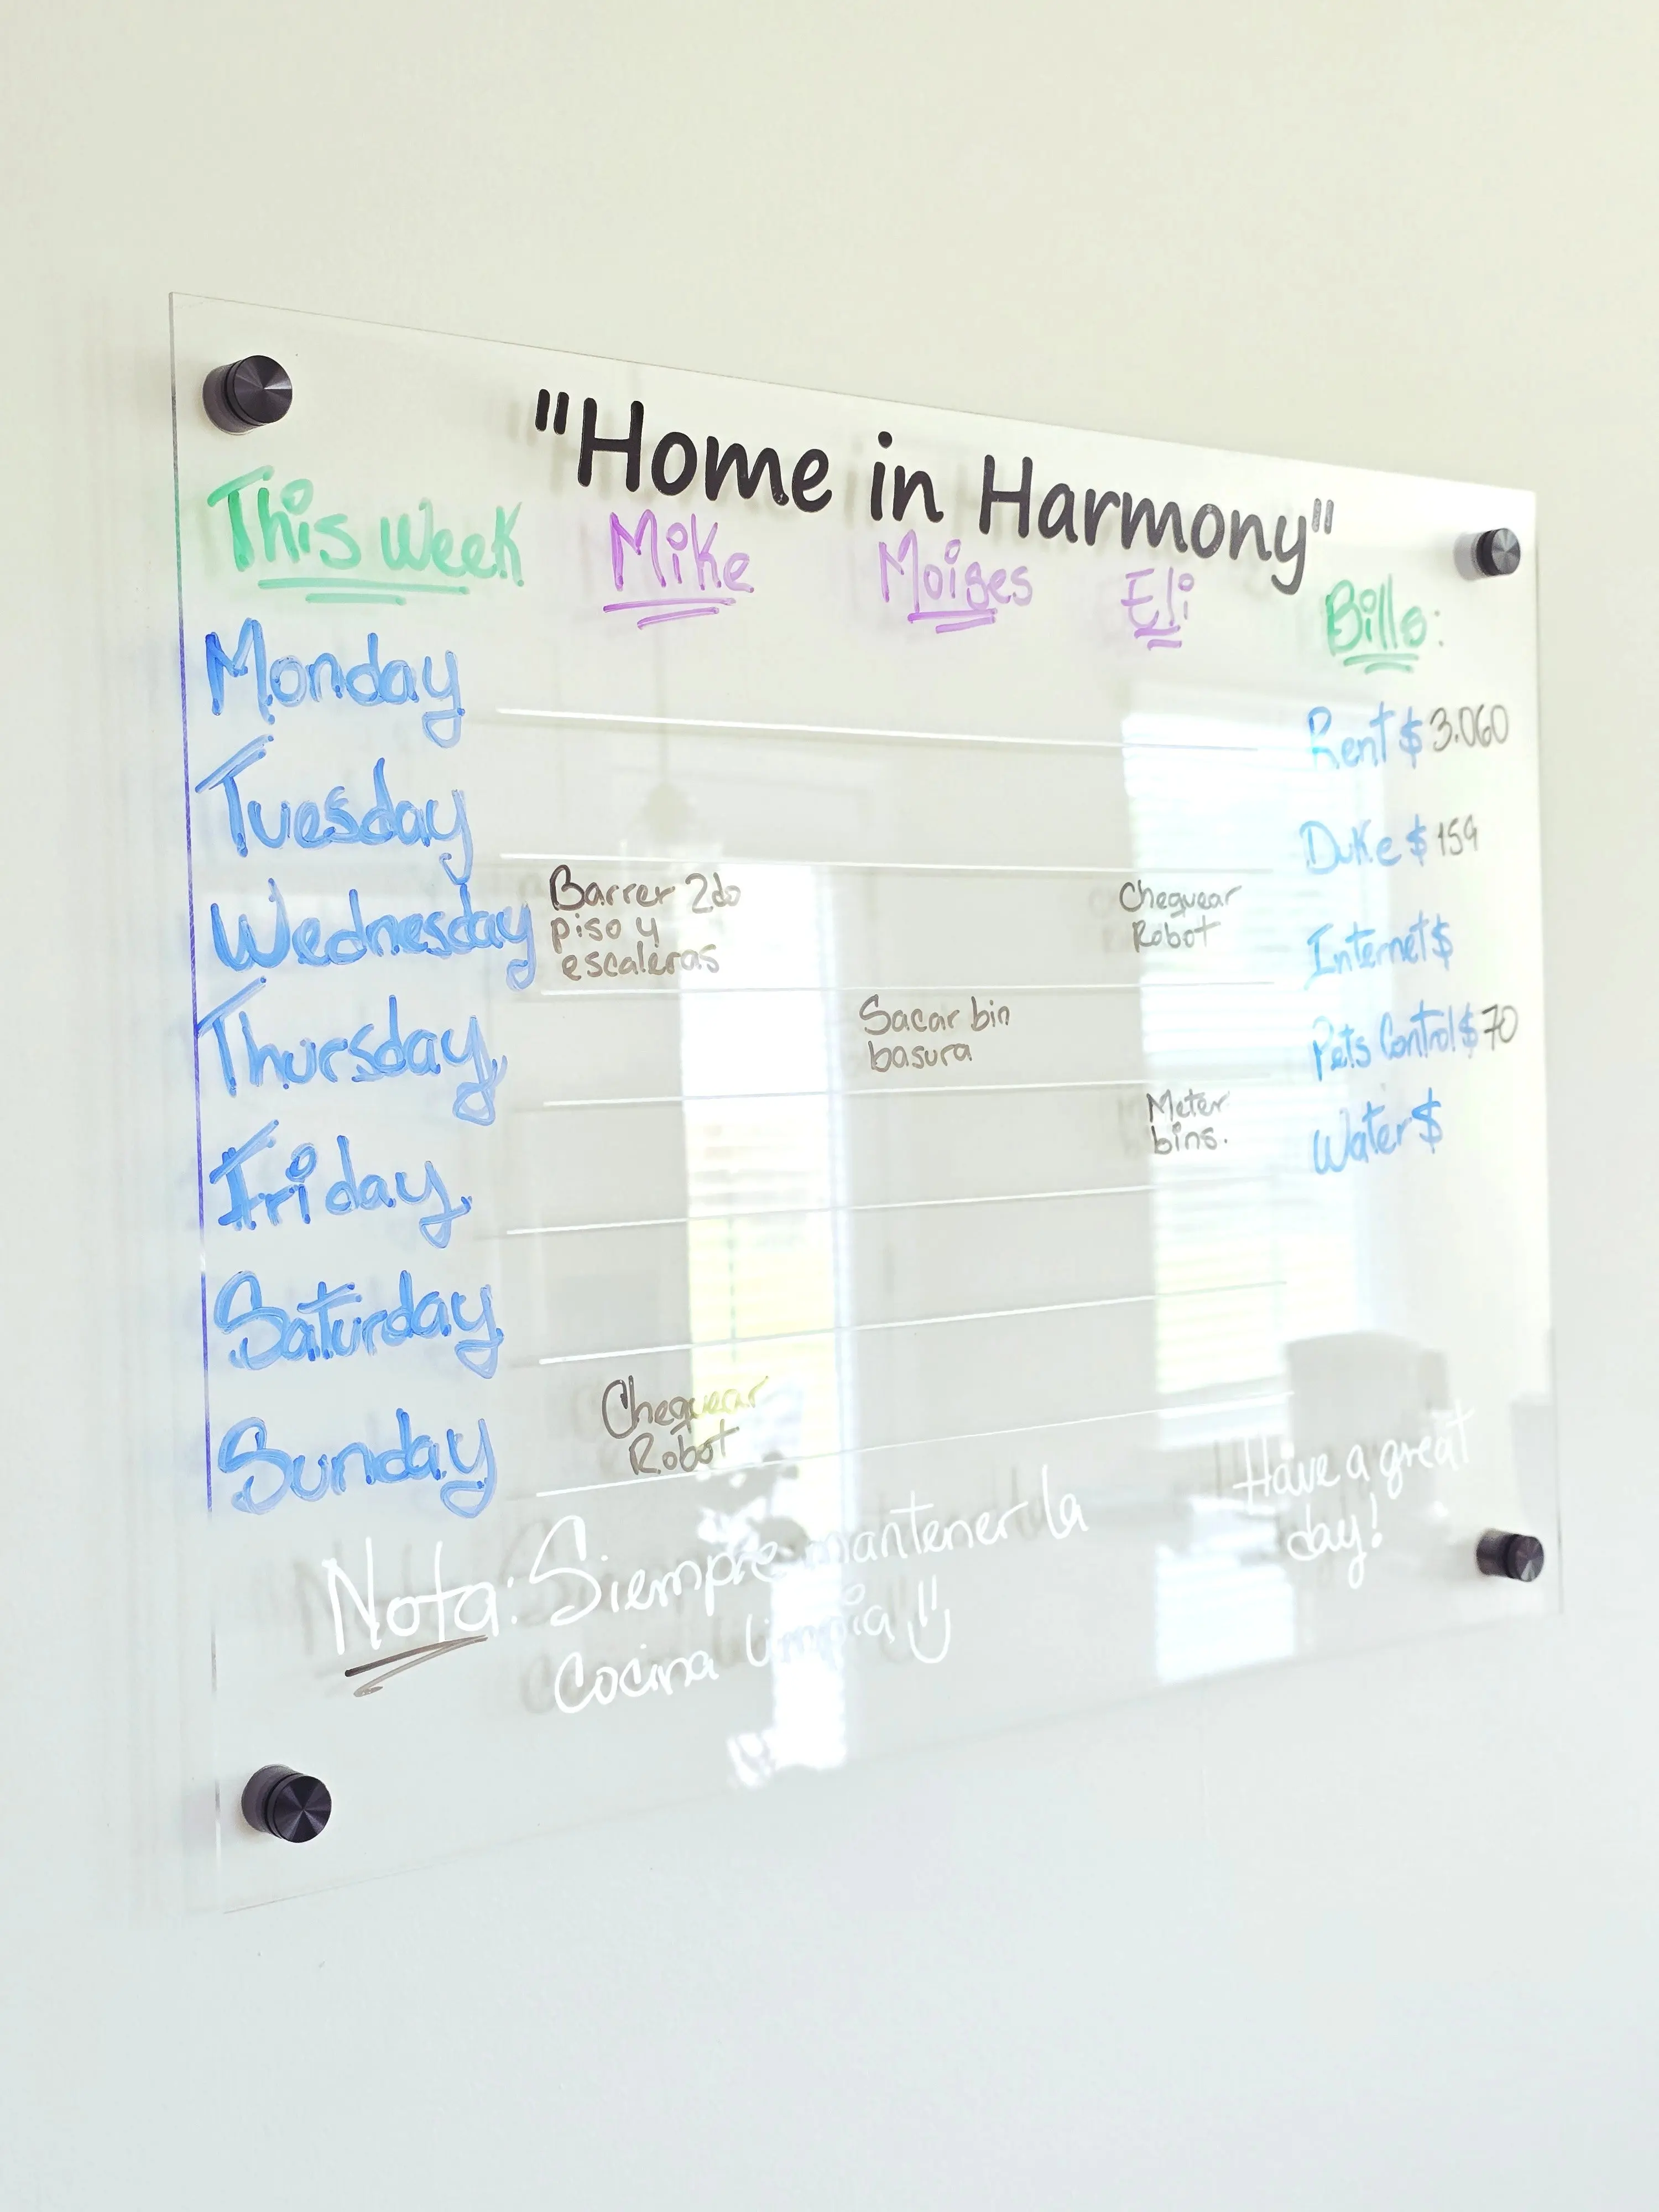 "Home in Harmony"
This Week Mike Moises Eli Bills:
Monday
Rent $ 3.060
Tuesday
Duke $ 159
Wednesday
Barrer 2do
piso y
escaleras
Chequear
Robot
Internet $
Thursday
Sacar bin
basura
Pets Control $ 70
Friday
Meter
bins.
Water $
Saturday
Sunday
Chequear
Robot
Nota: Siempre mantener la
cocina limpia
Have a great
day!